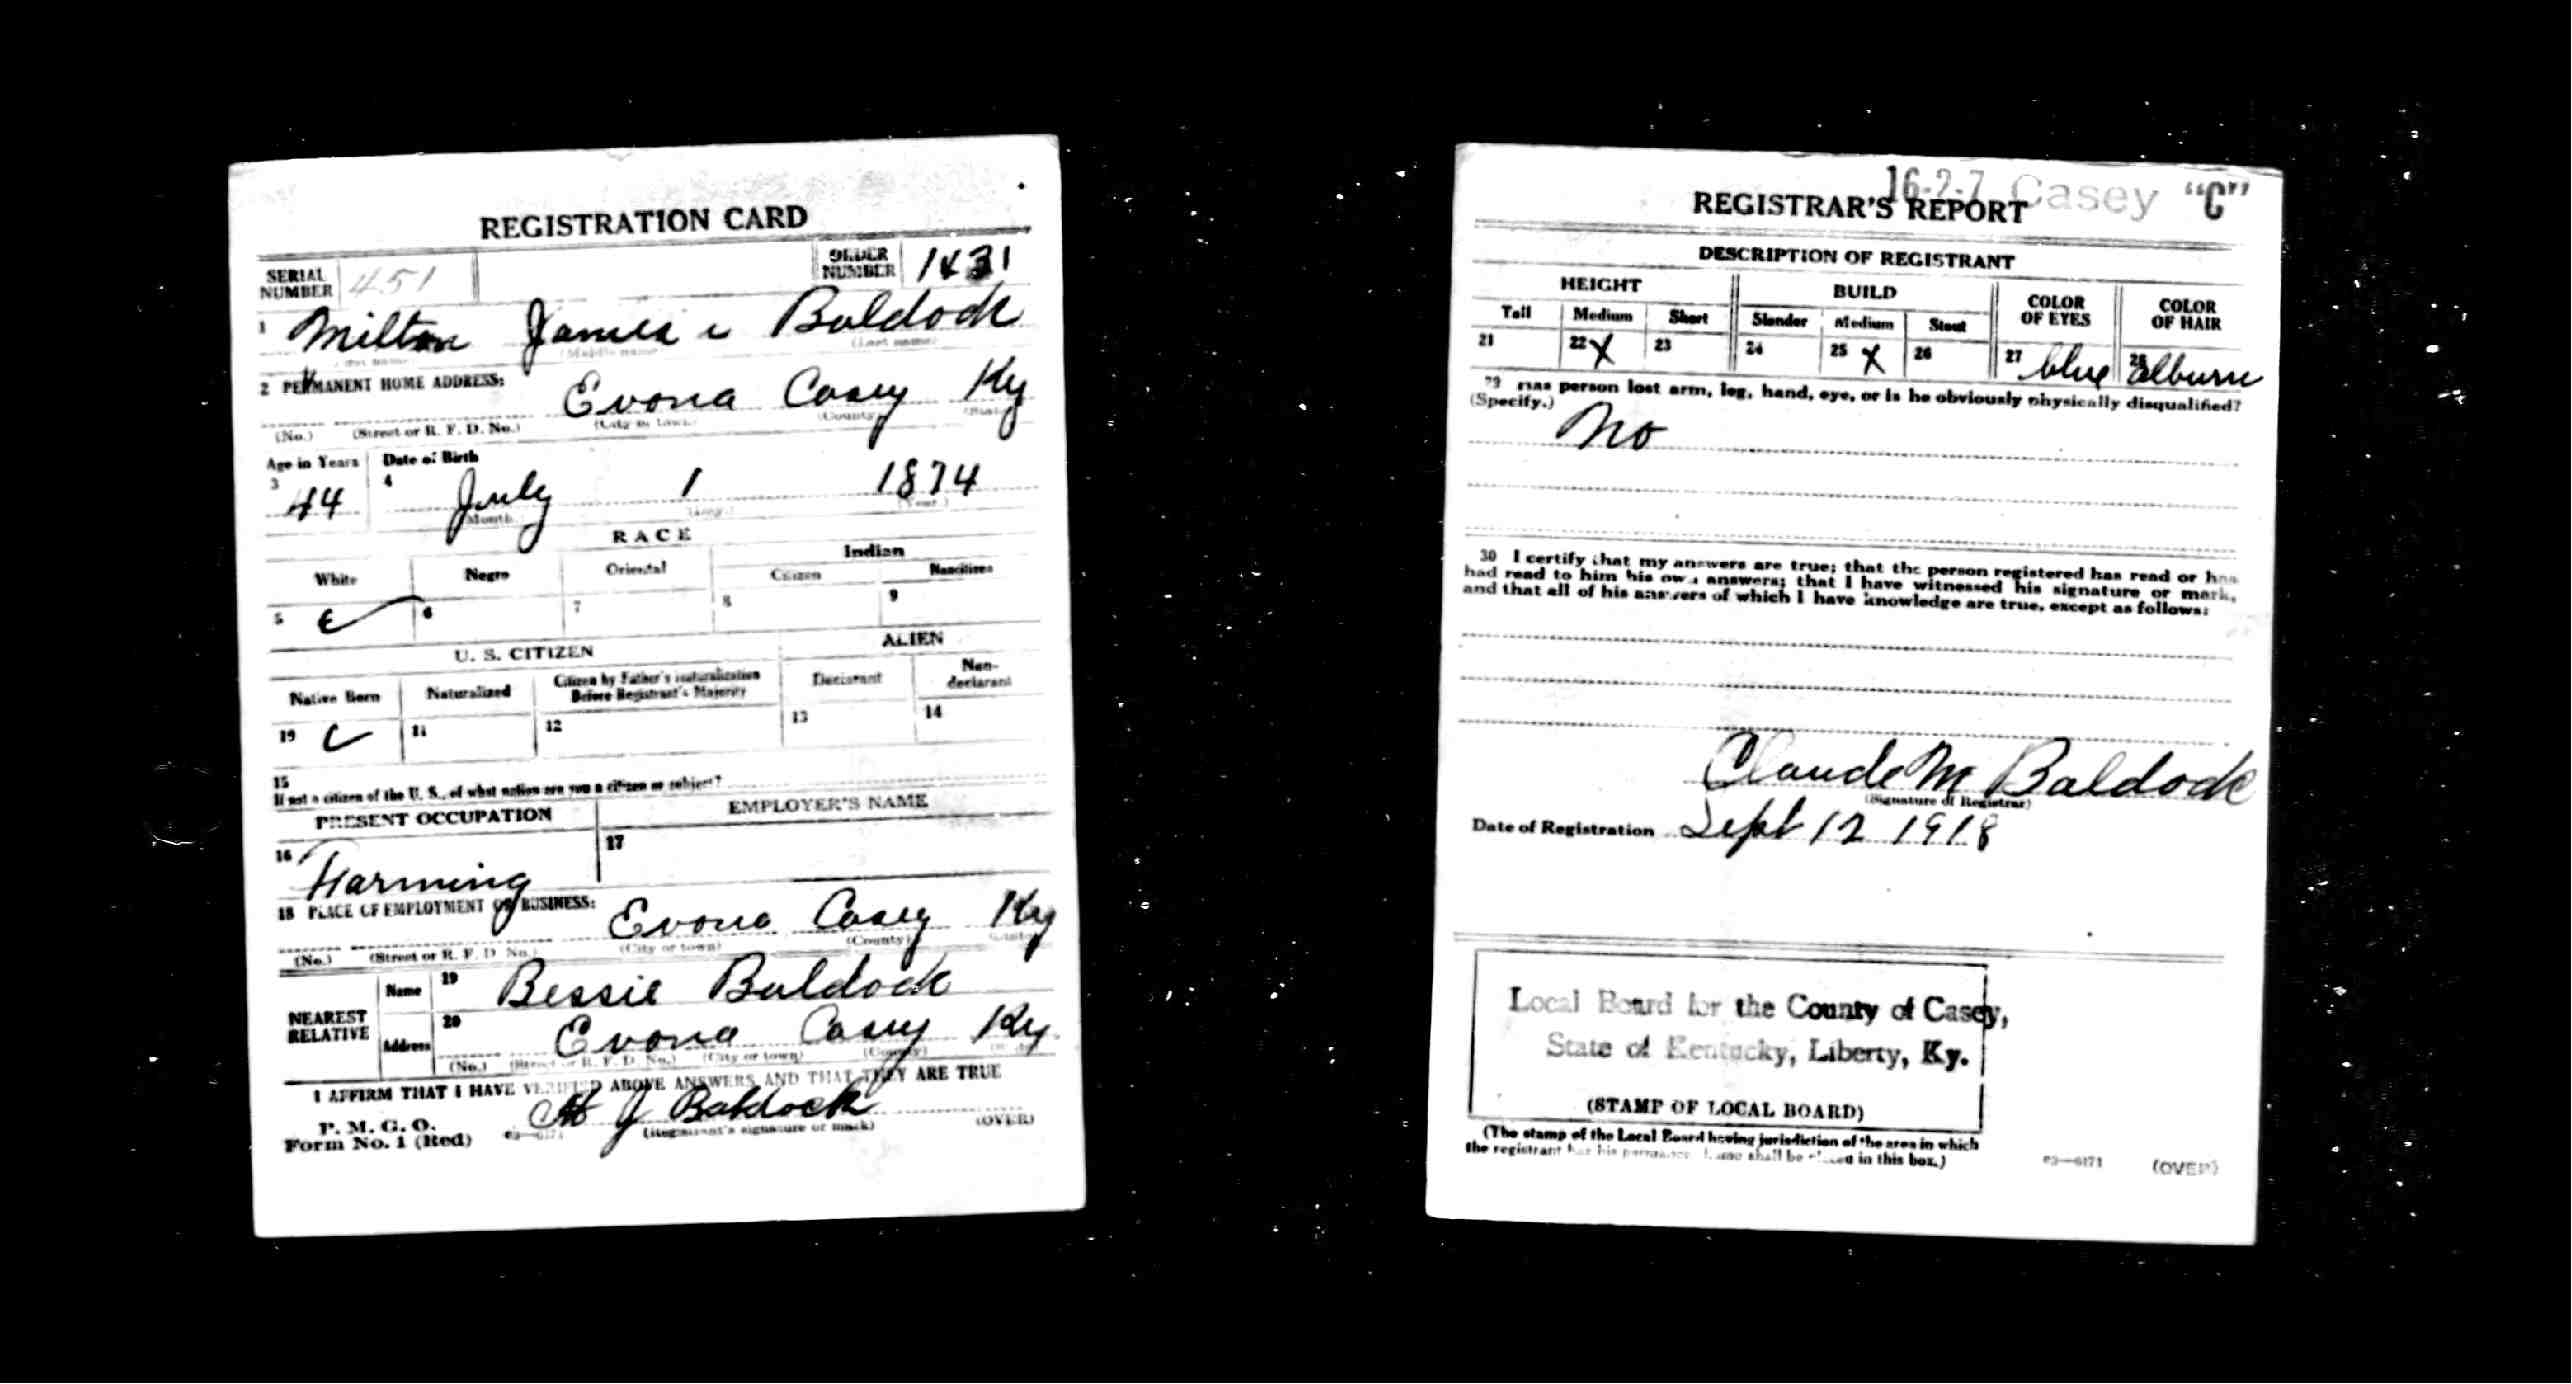 REGISTRATION CARD
SERIAL NUMBER 451 ORDER NUMBER 1431
1 Milton James Baldock
(Middle name) (Last name)
2 PERMANENT HOME ADDRESS:
Evona Casey Ky
(No.) (Street or R. F. D. No.) (City or town) (County) (State)
Age in Years Date of Birth
3 44 4 July 1 1874
(Month) (Day) (Year)
RACE
White Negro Oriental Indian
Citizen Noncitizen
5 6 7 8 9
U. S. CITIZEN ALIEN
Native Born Naturalized Citizen by Father's Naturalization Before Registrant's Majority Declarant Non-declarant
10 11 12 13 14
15
If not a citizen of the U. S., of what nation are you a citizen or subject?
PRESENT OCCUPATION EMPLOYER'S NAME
16 Farming 17
18 PLACE OF EMPLOYMENT OR BUSINESS:
Evona Casey Ky
(No.) (Street or R. F. D. No.) (City or town) (County) (State)
NEAREST RELATIVE
Name 19 Bessie Baldock
Address 20 Evona Casey Ky
(No.) (Street or R. F. D. No.) (City or town) (County)
I AFFIRM THAT I HAVE VERIFIED ABOVE ANSWERS AND THAT THEY ARE TRUE
P. M. G. O.
Form No. 1 (Red)
J Baldock
(Registrant's signature or mark) (OVER)
16-2-7 Casey "C"
REGISTRAR'S REPORT
DESCRIPTION OF REGISTRANT
HEIGHT BUILD COLOR OF EYES COLOR OF HAIR
Tall Medium Short Slender Medium Stout
21 22 X 23 24 25 X 26 27 blue 28
29 Has person lost arm, leg, hand, eye, or is he obviously physically disqualified?
(Specify.)
No
30 I certify that my answers are true; that the person registered has read or has
had read to him his own answers; that I have witnessed his signature or mark,
and that all of his answers of which I have knowledge are true, except as follows:
Claude M Baldock
(Signature of Registrar)
Date of Registration Sept 12 1918
Local Board for the County of Casey,
State of Kentucky, Liberty, Ky.
(STAMP OF LOCAL BOARD)
(The stamp of the Local Board having jurisdiction of the area in which
the registrant has his permanent home shall be placed in this box.)
03—6171 (OVER)